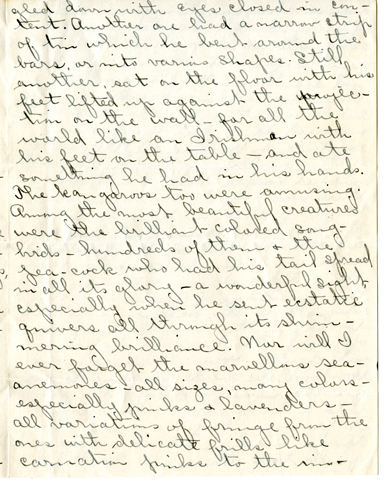 gled down with eyes closed in con-
tent. Another one had a narrow strip
of tin which he bent around the
bars, or into varios shapes. Still
another, sat on the floor with his
feet lifted up against the projec-
tion on the wall - for all the
world like an Irishman with
his feet on the table - and ate
something he had in his hands.
The kangaroos too were amusing.
Among the most beautiful creatures
were the brilliant colored song-
birds - hundreds of them & the
pea-cock who had his tail spread
in all its glory - a wonderful sight
especially when he sent ecstatic
quivers all through its shim-
mering brilliance. Nor will I
ever forget the marvellous sea-
anemones - all sizes, many colors -
especially pinks & lavenders -
all variations of fringe from the
ones with delicate frills like
carnation pinks to the im-